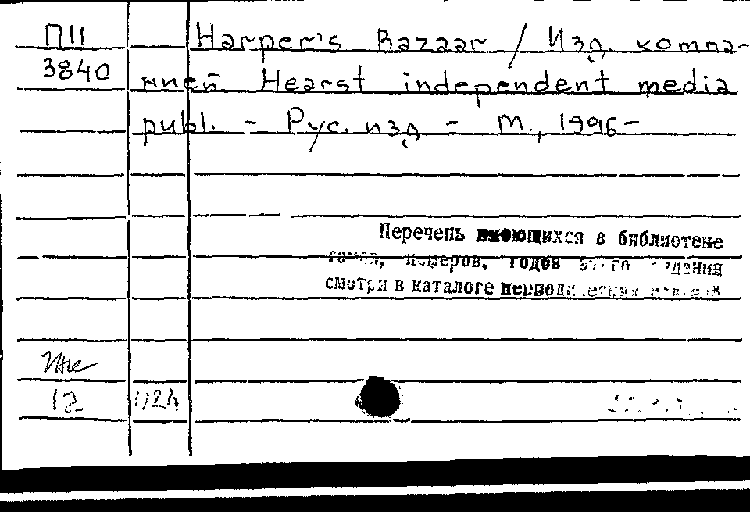 П11
3840
Harper's Bazaar / Изд. компа-
нией Hearst independent media
publ. - Рус. изд - М., 1996-
Перечень имеющихся в библиотеке
томов, номеров, годов этого издания
смотри в каталоге периодических изданий
12